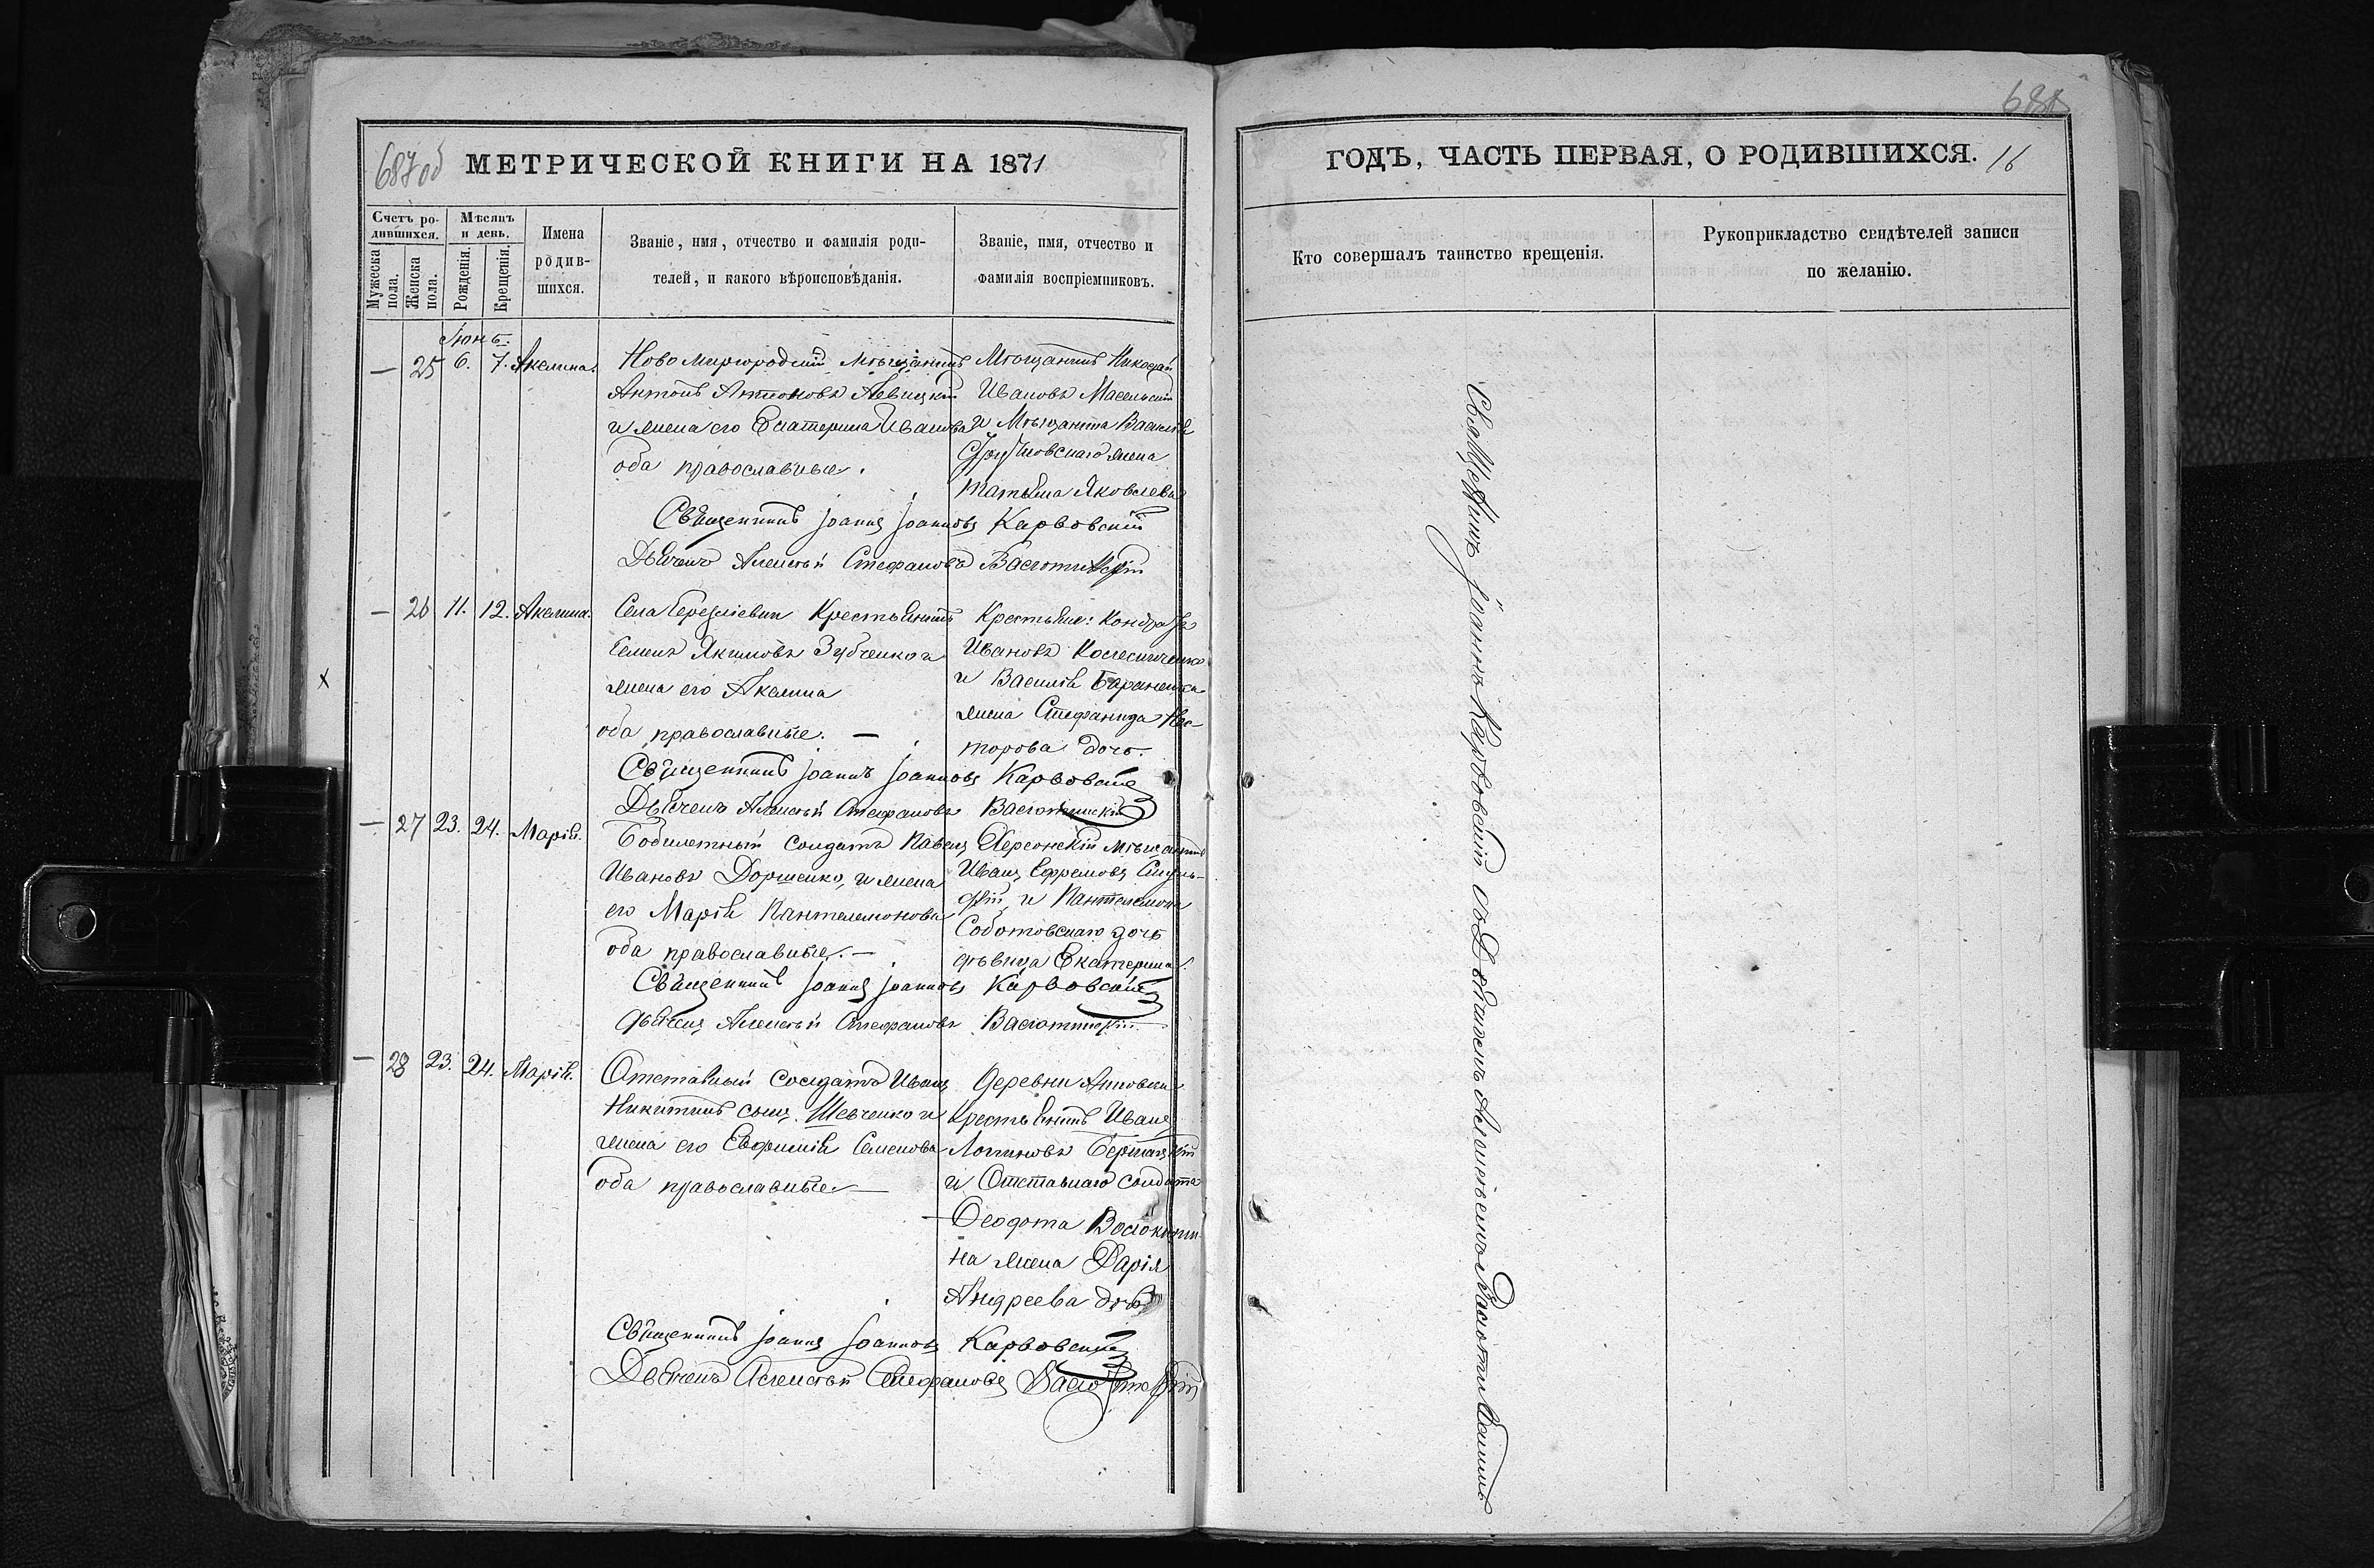 687 об МЕТРИЧЕСКОЙ КНИГИ НА 1871
Счетъ ро-
дившихся.
Мужеска пола.
Женска пола.
Мѣсяцъ
и день.
Рожденія.
Крещенія.
Имена
родив-
шихся.
Званіе, имя, отчество и фамилія роди-
телей, и какого вѣроисповѣданія.
Званіе, имя, отчество и
фамилія воспріемниковъ.
Іюнь.
— 25 6. 7. Акелина.
Ново Миргородскій Мѣщанинъ
Антонъ Антоновъ Левицкій
и жена его Екатерина Иванова
оба православные.
Мѣщанинъ Николай
Ивановъ
и Мѣщанина Василія
жена
Татьяна Яковлева
Священникъ Іоаннъ Іоанновъ Карвовскій
Дьячекъ Алексѣй Стефановъ Васютинскій
— 26 11. 12. Акелина.
Села Крестьянинъ
Семенъ Якимовъ Зубченко и
жена его Акелина
оба православные. —
Крестьяне: Кондратъ
Ивановъ Колесниченко
и Василія Бараненка
жена Стефанида Нес-
торова дочь.
Священникъ Іоаннъ Іоанновъ Карвовскій
Дьячекъ Алексѣй Стефановъ Васютинскій
— 27 23. 24. Марія.
солдатъ Павелъ
Ивановъ Доршенко, и жена
его Марія Пантелемонова
оба православные. —
Херсонскій Мѣщанинъ
Иванъ Ефремовъ
и Пантелемона
Соботовскаго дочь
дѣвица Екатерина.
Священникъ Іоаннъ Іоанновъ Карвовскій
Дьячекъ Алексѣй Стефановъ Васютинскій
— 28 23. 24. Марія.
Отставный солдатъ Иванъ
Никитинъ сынъ Шевченко и
жена его Евфимія Семенова
оба православные —
Деревни
Крестьянинъ Иванъ
Логиновъ
и Отставнаго солдата
Ѳеодота
на жена Дарія
Андреева дочь
Священникъ Іоаннъ Іоанновъ Карвовскій
Дьячекъ Алексѣй Стефановъ Васютинскій
688
ГОДЪ, ЧАСТЬ ПЕРВАЯ, О РОДИВШИХСЯ. 16
Кто совершалъ таинство крещенія.
Рукоприкладство свидѣтелей записи
по желанію.
Священникъ Іоаннъ Карвовскій съ Дьячкомъ Алексѣемъ Васютинскимъ